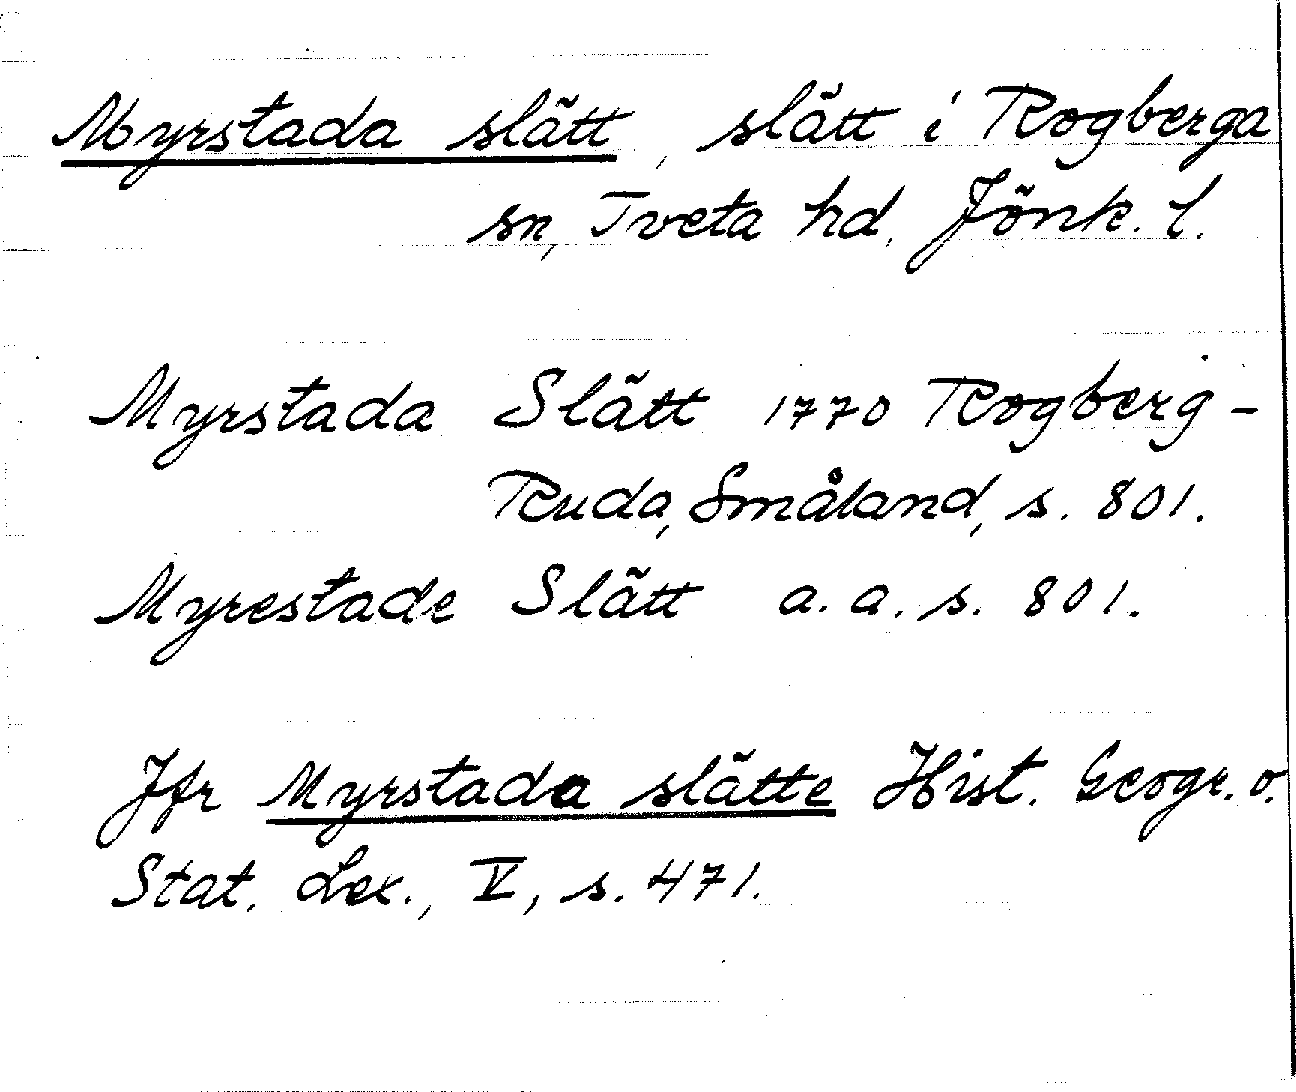 Myrstada slätt, slätt i Rogberga
sn, Tveta hd, Jönk. l.
Myrstada Slätt 1770 Rogberg-
Ruda, Småland, s. 801.
Myrestade Slätt a. a. s. 801.
Jfr Myrstada slätte Hist. Geogr. o.
Stat. Lex., V, s. 471.